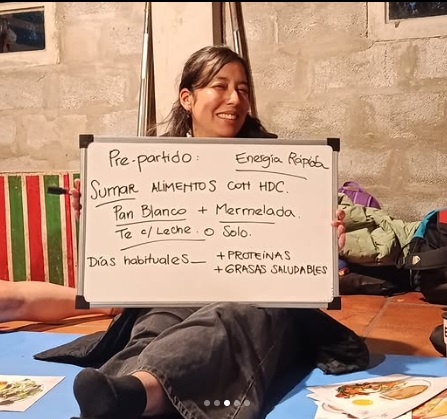 Pre-partido: Energía Rápida
Sumar ALIMENTOS CON HDC.
Pan Blanco + Mermelada.
Te c/ Leche. o Solo.
Días habituales_ + PROTEÍNAS
+ GRASAS SALUDABLES